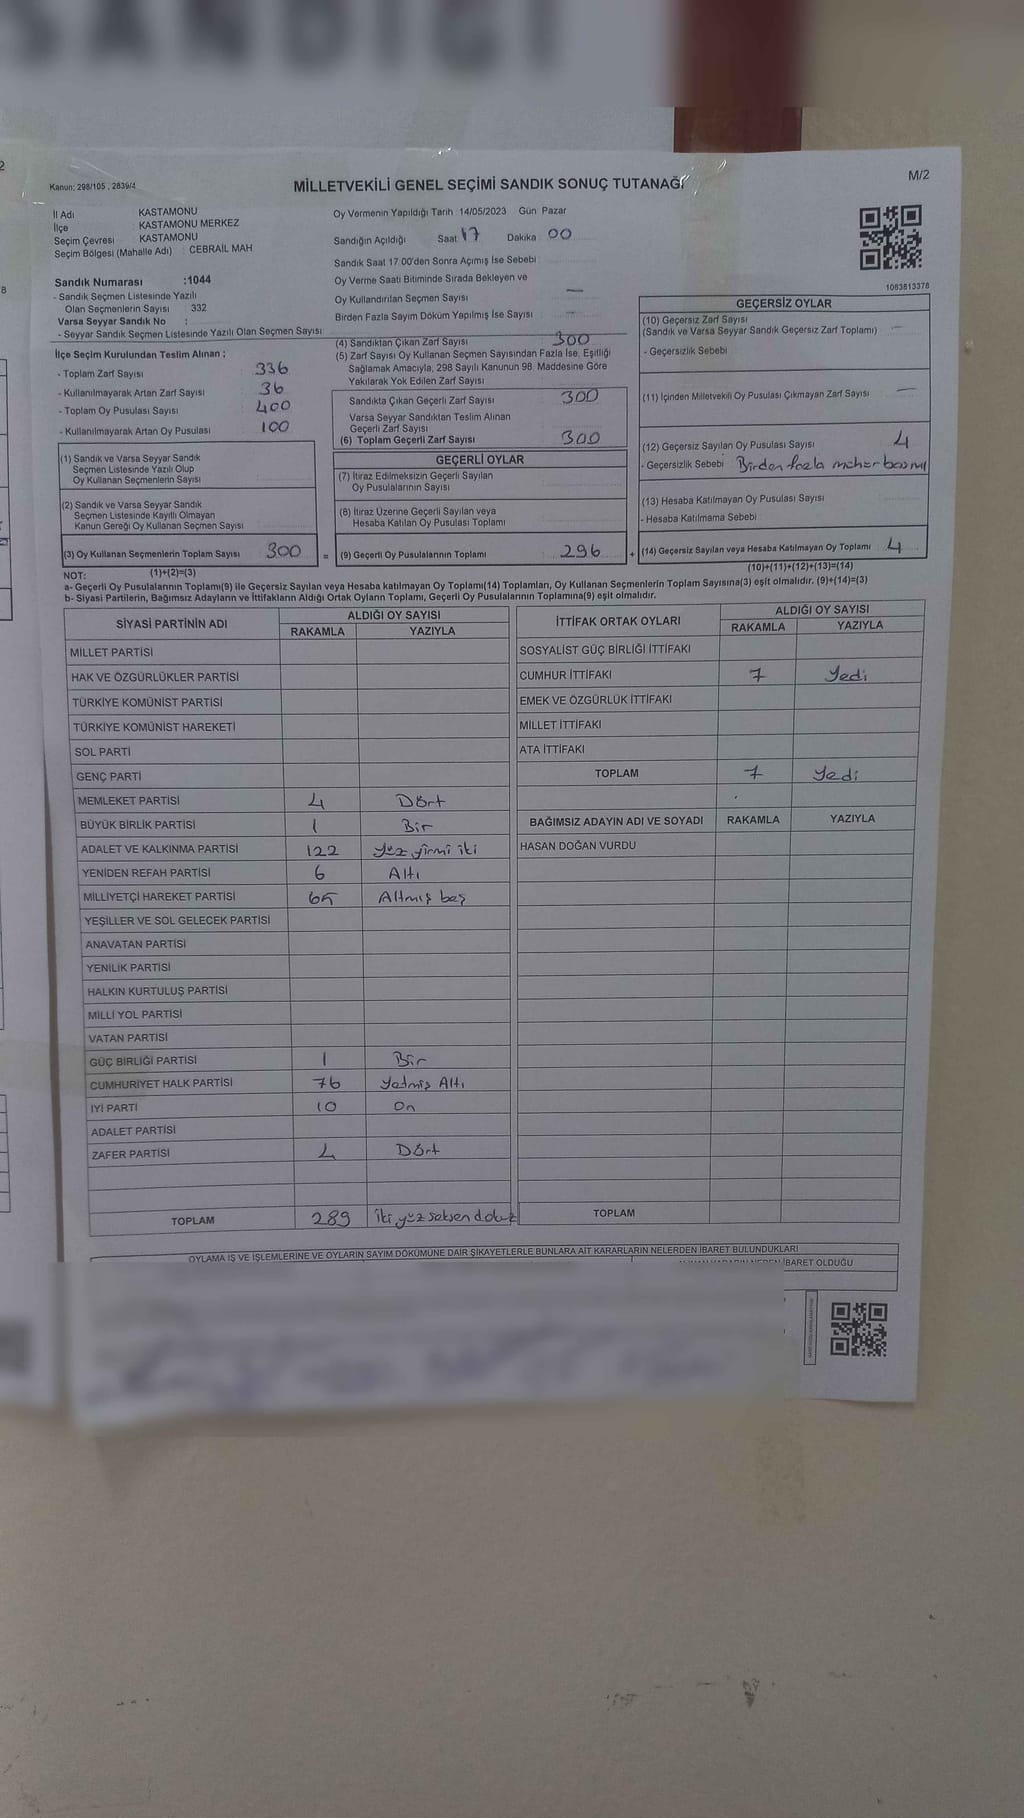 SANDIĞI
Kanun: 298/105 , 2839/4
MİLLETVEKİLİ GENEL SEÇİMİ SANDIK SONUÇ TUTANAĞI
M/2
İl Adı KASTAMONU
İlçe KASTAMONU MERKEZ
Seçim Çevresi KASTAMONU
Seçim Bölgesi (Mahalle Adı) : CEBRAİL MAH
Oy Vermenin Yapıldığı Tarih 14/05/2023 Gün Pazar
Sandığın Açıldığı Saat 17 Dakika 00
Sandık Saat 17.00'den Sonra Açımış İse Sebebi
Oy Verme Saati Bitiminde Sırada Bekleyen ve
Oy Kullandırılan Seçmen Sayısı —
Birden Fazla Sayım Döküm Yapılmış İse Sayısı : —
1083813378
Sandık Numarası :1044
- Sandık Seçmen Listesinde Yazılı
Olan Seçmenlerin Sayısı 332
Varsa Seyyar Sandık No :
- Seyyar Sandık Seçmen Listesinde Yazılı Olan Seçmen Sayısı
İlçe Seçim Kurulundan Teslim Alınan ;
- Toplam Zarf Sayısı 336
- Kullanılmayarak Artan Zarf Sayısı 36
- Toplam Oy Pusulası Sayısı 400
- Kullanılmayarak Artan Oy Pusulası 100
(1) Sandık ve Varsa Seyyar Sandık
Seçmen Listesinde Yazılı Olup
Oy Kullanan Seçmenlerin Sayısı
(2) Sandık ve Varsa Seyyar Sandık
Seçmen Listesinde Kayıtlı Olmayan
Kanun Gereği Oy Kullanan Seçmen Sayısı
(3) Oy Kullanan Seçmenlerin Toplam Sayısı 300 =
(1)+(2)=(3)
(4) Sandıktan Çıkan Zarf Sayısı 300
(5) Zarf Sayısı Oy Kullanan Seçmen Sayısından Fazla İse, Eşitliği
Sağlamak Amacıyla, 298 Sayılı Kanunun 98. Maddesine Göre
Yakılarak Yok Edilen Zarf Sayısı
Sandıkta Çıkan Geçerli Zarf Sayısı 300
Varsa Seyyar Sandıktan Teslim Alınan
Geçerli Zarf Sayısı
(6) Toplam Geçerli Zarf Sayısı 300
GEÇERLİ OYLAR
(7) İtiraz Edilmeksizin Geçerli Sayılan
Oy Pusulalarının Sayısı
(8) İtiraz Üzerine Geçerli Sayılan veya
Hesaba Katılan Oy Pusulası Toplamı
(9) Geçerli Oy Pusulalarının Toplamı 296 +
GEÇERSİZ OYLAR
(10) Geçersiz Zarf Sayısı
(Sandık ve Varsa Seyyar Sandık Geçersiz Zarf Toplamı) —
- Geçersizlik Sebebi
(11) İçinden Milletvekili Oy Pusulası Çıkmayan Zarf Sayısı —
(12) Geçersiz Sayılan Oy Pusulası Sayısı 4
- Geçersizlik Sebebi Birden fazla mühür basımı
(13) Hesaba Katılmayan Oy Pusulası Sayısı
- Hesaba Katılmama Sebebi
(14) Geçersiz Sayılan veya Hesaba Katılmayan Oy Toplamı 4
(10)+(11)+(12)+(13)=(14)
NOT:
a- Geçerli Oy Pusulalarının Toplamı(9) ile Geçersiz Sayılan veya Hesaba katılmayan Oy Toplamı(14) Toplamları, Oy Kullanan Seçmenlerin Toplam Sayısına(3) eşit olmalıdır. (9)+(14)=(3)
b- Siyasi Partilerin, Bağımsız Adayların ve İttifakların Aldığı Ortak Oyların Toplamı, Geçerli Oy Pusulalarının Toplamına(9) eşit olmalıdır.
SİYASİ PARTİNİN ADI ALDIĞI OY SAYISI
RAKAMLA YAZIYLA
MİLLET PARTİSİ
HAK VE ÖZGÜRLÜKLER PARTİSİ
TÜRKİYE KOMÜNİST PARTİSİ
TÜRKİYE KOMÜNİST HAREKETİ
SOL PARTİ
GENÇ PARTİ
MEMLEKET PARTİSİ 4 Dört
BÜYÜK BİRLİK PARTİSİ 1 Bir
ADALET VE KALKINMA PARTİSİ 122 Yüz yirmi iki
YENİDEN REFAH PARTİSİ 6 Altı
MİLLİYETÇİ HAREKET PARTİSİ 65 Altmış beş
YEŞİLLER VE SOL GELECEK PARTİSİ
ANAVATAN PARTİSİ
YENİLİK PARTİSİ
HALKIN KURTULUŞ PARTİSİ
MİLLİ YOL PARTİSİ
VATAN PARTİSİ
GÜÇ BİRLİĞİ PARTİSİ 1 Bir
CUMHURİYET HALK PARTİSİ 76 Yedmiş Altı
İYİ PARTİ 10 On
ADALET PARTİSİ
ZAFER PARTİSİ 4 Dört
TOPLAM 289 İki yüz seksen dokuz
İTTİFAK ORTAK OYLARI ALDIĞI OY SAYISI
RAKAMLA YAZIYLA
SOSYALİST GÜÇ BİRLİĞİ İTTİFAKI
CUMHUR İTTİFAKI 7 Yedi
EMEK VE ÖZGÜRLÜK İTTİFAKI
MİLLET İTTİFAKI
ATA İTTİFAKI
TOPLAM 7 Yedi
BAĞIMSIZ ADAYIN ADI VE SOYADI RAKAMLA YAZIYLA
HASAN DOĞAN VURDU
TOPLAM
OYLAMA İŞ VE İŞLEMLERİNE VE OYLARIN SAYIM DÖKÜMÜNE DAİR ŞİKAYETLERLE BUNLARA AİT KARARLARIN NELERDEN İBARET BULUNDUKLARI
İBARET OLDUĞU